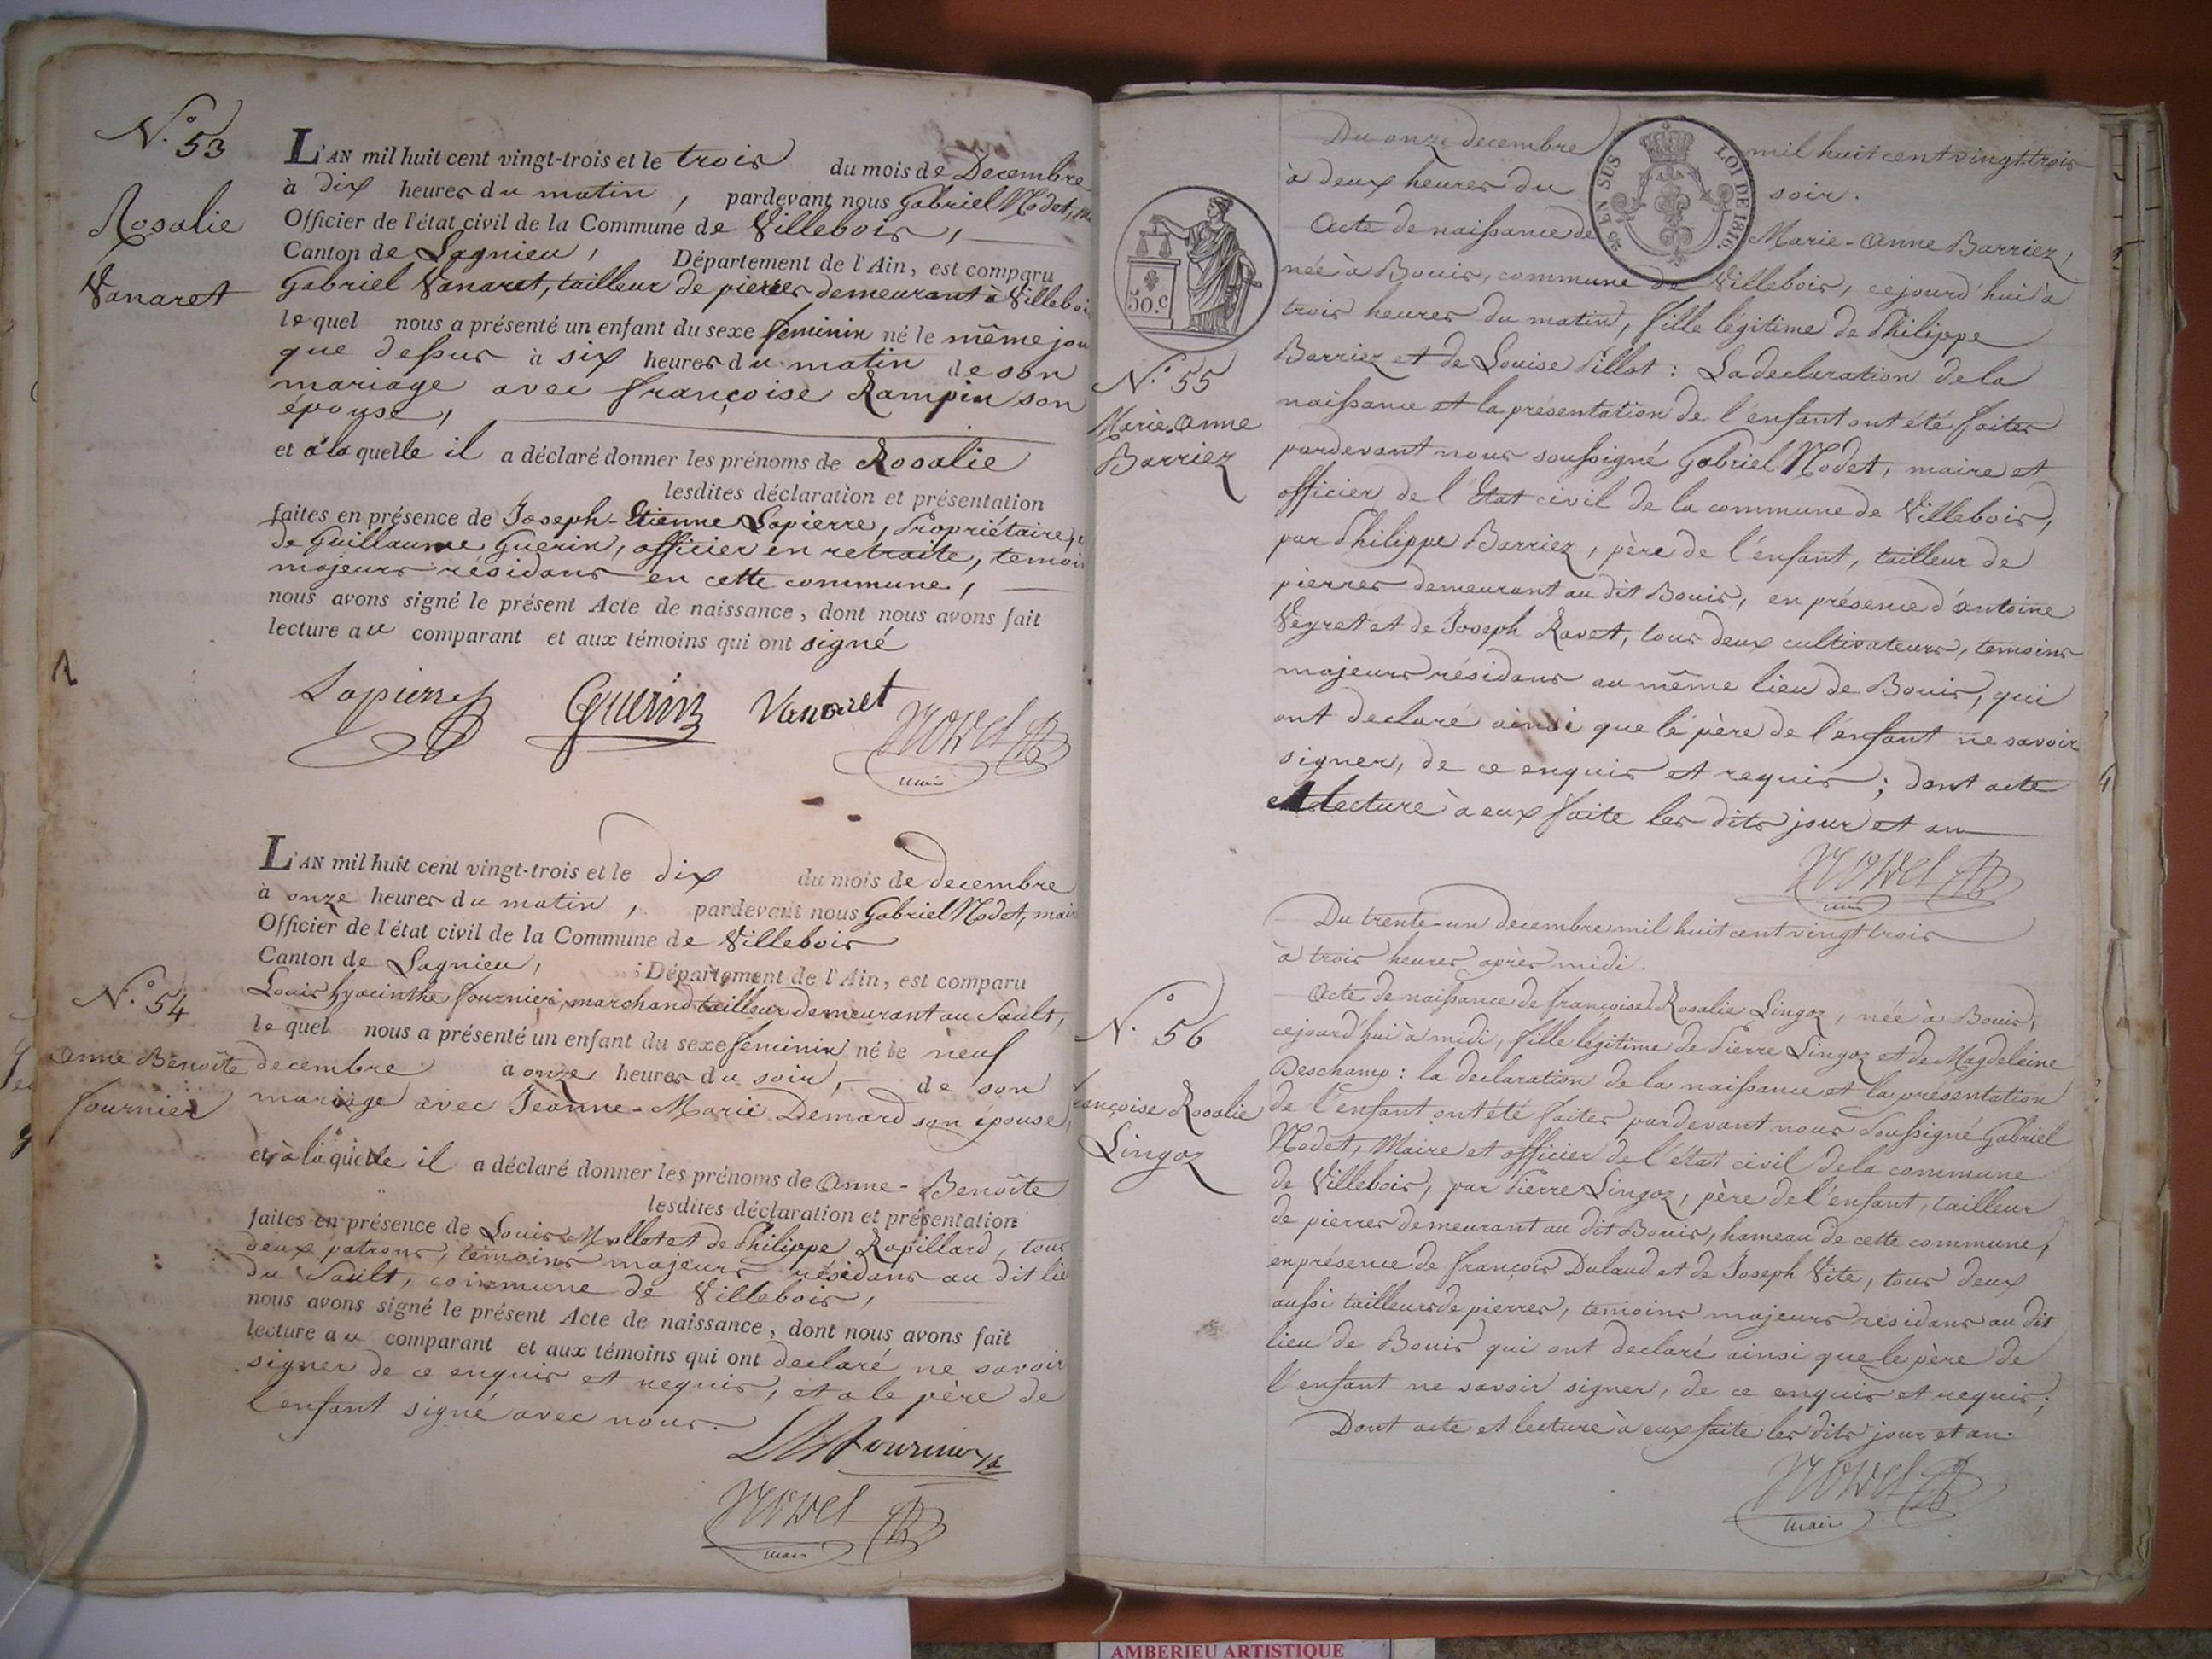 N.° 53
Rosalie
Vanaret
L'AN mil huit cent vingt-trois et le trois du mois de Decembre
à dix heures du matin, pardevant nous Gabriel Nodet,
Officier de l'état civil de la Commune de Villebois,
Canton de Lagnieu, Département de l'Ain, est comparu
Gabriel Vanaret, tailleur de pierres demeurant à Villebois
lequel nous a présenté un enfant du sexe feminin né le même jou
que dessus à six heures du matin de son
mariage avec françoise Rampin son
épouse,
et à laquelle il a déclaré donner les prénoms de Rosalie
lesdites déclaration et présentation
faites en présence de Joseph-Etienne Lapierre, Propriétaire,
de Guillaume Guerin, officier en retraite, temoin
majeurs résidans en cette commune,
nous avons signé le présent Acte de naissance, dont nous avons fait
lecture au comparant et aux témoins qui ont signé
Lapierre Guerin Vanaret Nodet
maire
N.° 54
Anne Benoîte
fournier
L'AN mil huit cent vingt-trois et le dix du mois de decembre
à onze heures du matin, pardevant nous Gabriel Nodet, mair
Officier de l'état civil de la Commune de Villebois
Canton de Lagnieu, Département de l'Ain, est comparu
Louis hyacinthe fournier, marchand tailleur demeurant au Sault,
lequel nous a présenté un enfant du sexe feminin né le neuf
decembre a onze heures du soir, de son
mariage avec Jeanne-Marie Demard son épouse,
et à laquelle il a déclaré donner les prénoms de Anne-Benoîte
lesdites déclaration et présentation
faites en présence de Louis Mollet et de Philippe Ropillard, tous
deux patrons, temoins majeurs résidans au dit lie
du Sault, commune de Villebois,
nous avons signé le présent Acte de naissance, dont nous avons fait
lecture au comparant et aux témoins qui ont declaré ne savoir
signer de ce enquis et requis, et a le père de
l'enfant signé avec nous.
LH fournier
Nodet
maire
Du onze decembre mil huit cent vingt trois
à deux heures du soir.
2/10 EN SUS LOI DE 1816.
50.c
N.° 55
Marie Anne
Barriez
Acte de naissance de Marie-Anne Barriez,
née à Bouis, commune de Villebois, cejourd'hui à
trois heures du matin, fille légitime de Philippe
Barriez et de Louise Pillot : La declaration de la
naissance et la présentation de l'enfant ont été faites
pardevant nous soussigné Gabriel Nodet, maire et
officier de l'Etat civil de la commune de Villebois,
par Philippe Barriez, père de l'enfant, tailleur de
pierres demeurant au dit Bouis, en présence d'antoine
Veyret et de Joseph Ravet, tous deux cultivateurs, temoins
majeurs résidans au même lieu de Bouis, qui
ont declaré ainsi que le père de l'enfant ne savoir
signer, de ce enquis et requis ; dont acte
et lecture à eux faite les dits jour et an
Nodet
maire
Du trente-un decembre mil huit cent vingt trois
à trois heures après midi.
N.° 56
françoise Rosalie
Lingoz
Acte de naissance de françoise Rosalie Lingoz, née à Bouis,
cejourd'hui à midi, fille légitime de Pierre Lingoz et de Magdeleine
Deschamp : la declaration de la naissance et la présentation
de l'enfant ont été faites pardevant nous Soussigné Gabriel
Nodet, Maire et officier de l'état civil de la commune
de Villebois, par Pierre Lingoz, père de l'enfant, tailleur
de pierres demeurant au dit Bouis, hameau de cette commune,
en présence de françois Dulaud et de Joseph Vite, tous deux
aussi tailleurs de pierres, temoins majeurs résidans au dit
lieu de Bouis qui ont declaré ainsi que le père de
l'enfant ne savoir signer, de ce enquis et requis ;
Dont acte et lecture à eux faite les dits jour et an.
Nodet
maire
AMBERIEU ARTISTIQUE